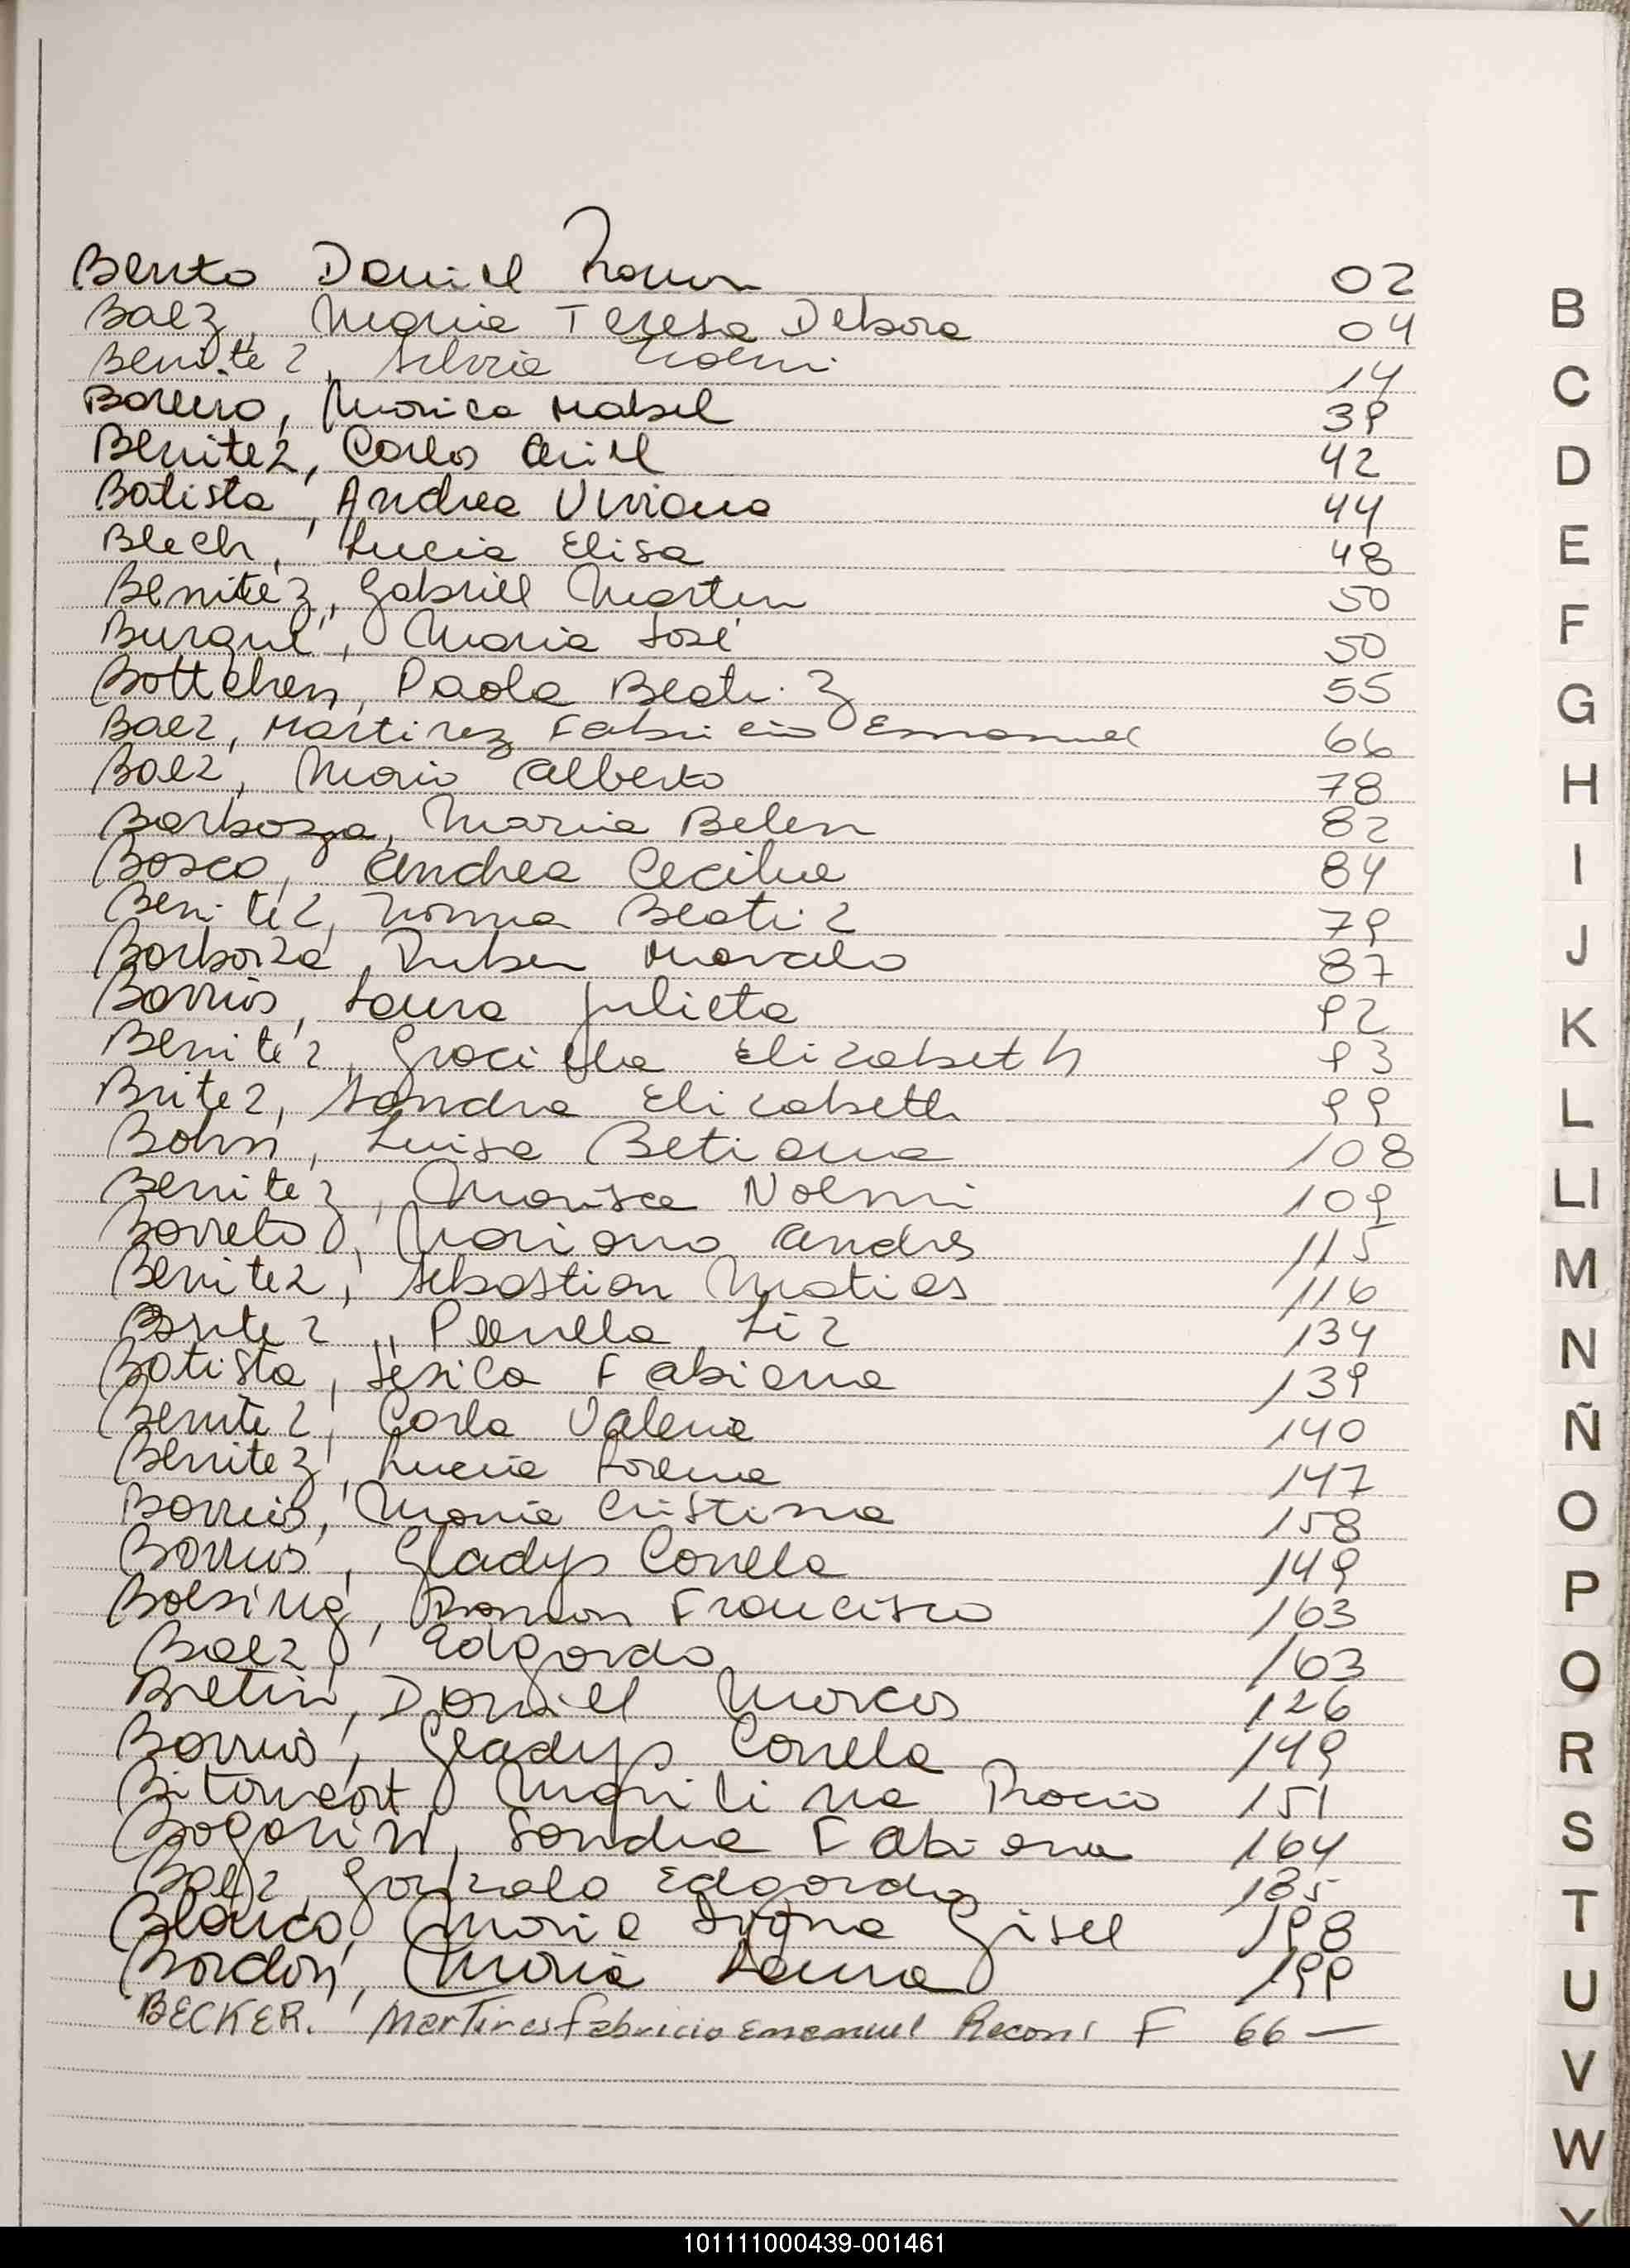 Benito Daniel Ramon 02
Baez, Maria Teresa Debora 04
Benitez, Silvia Noemi 14
Barrero, Monica Mabel 39
Benitez, Carlos Ariel 42
Batista, Andrea Viviana 44
Blech, Lucia Elisa 48
Benitez, Gabriel Martin 50
Burqué, Maria José 50
Bottcher, Paola Beatriz 55
Baez, Martirez Fabricio Emanuel 66
Baez, Mario Alberto 78
Barbozza, Maria Belen 82
Bosco, Andrea Cecilia 84
Benitez, Norma Beatriz 79
Barboza, Ruben Marcelo 87
Barrios, Laura Julieta 92
Benitez, Graciela Elizabeth 93
Britez, Sandra Elizabeth 99
Bohn, Luisa Betiana 108
Benitez, Marisa Noemi 109
Barreto, Mariano Andres 115
Benitez, Sebastian Matias 116
Britez, Liz 134
Batista, Jesica Fabiana 139
Benitez, Carla Valeria 140
Benitez, Lucia Lorena 147
Barrios, Maria Cristina 158
Barrios, Gladys Correla 149
Boesing, Ramon Francisco 163
Baez, Edgardo 163
Bretin, Daniel Marcos 126
Barrios, Gladys Correla 149
Bitancort Marilina Rocio 151
Bogarin, Sandra Fabiana 164
Baez, Gonzalo Edgardo 185
Blanco, Maria Gisel 198
Bordon, Maria Laura 199
BECKER. Martires Fabricio Emanuel F 66 —
B
C
D
E
F
G
H
I
J
K
L
Ll
M
N
Ñ
O
P
Q
R
S
T
U
V
W
101111000439-001461